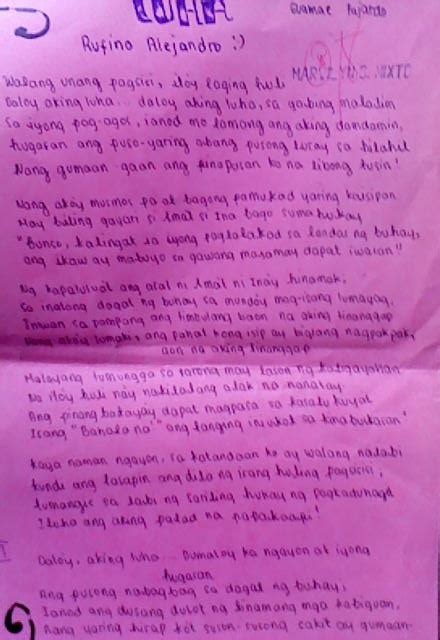 LUHA
Quamae Fajardo
Rufino Alejandro :)
Walang unang pagsisi, ito'y laging huli
Daloy aking luha... daloy aking luha, sa gabing malalim
sa iyong pag-agos, ianod mo lamang ang aking damdamin,
hugasan ang puso-yaring abang pusong luray sa hilahil
Nang gumaan-gaan ang pinapasan ko na libong tusin!
Nang ako'y musmos pa at bagong pamukad yaring kaisipan
May biling gayari si Ama't si Ina bago sumahukay
"Bunso, kaiingat sa iyong paglalakad sa landas ng buhay,
ang ikaw ay mabuyo sa gawang masama'y dapat iwasan!!
Ng kapalaluat ang aral ni Ama't ni Ina'y hinamak,
sa inalong dagat ng buhay sa mundo'y mag-isang lumayag,
Iniwan sa pampang ang timbulang baon na aking tinanggap
Nang ako'y lumaki, ang pahat kong isip ay biglang nagpakpak,
aon na aking tinanggap
Malayang tumungga sa sarong may lason ng kaligayahan
Na ito'y huli nang nakilalang alak na nanatay
Ang pinag batayay dapat magpasa sa kasalu kuyal
Isang "Bahala na" ang tanging iniukol sa kinabukasan"
Kaya naman ngayon, sa katandaan ko ay walang nalabi
kundi ang lasapin ang dita ng isang huling pagsisisi,
tumangis sa labi ng sariling hukay ng pagkaduhagi
Iluha ang aking palad na napakaapi!
Daloy, aking luha... Dumaloy ka ngayon at iyong
hugasan
Ang pusong nabagbag sa dagat ng buhay,
Ianod ang dusang dulot ng tinamang mga kabiguan,
Nang yaring hirap ko't suson-susong sakit ay gumaan-